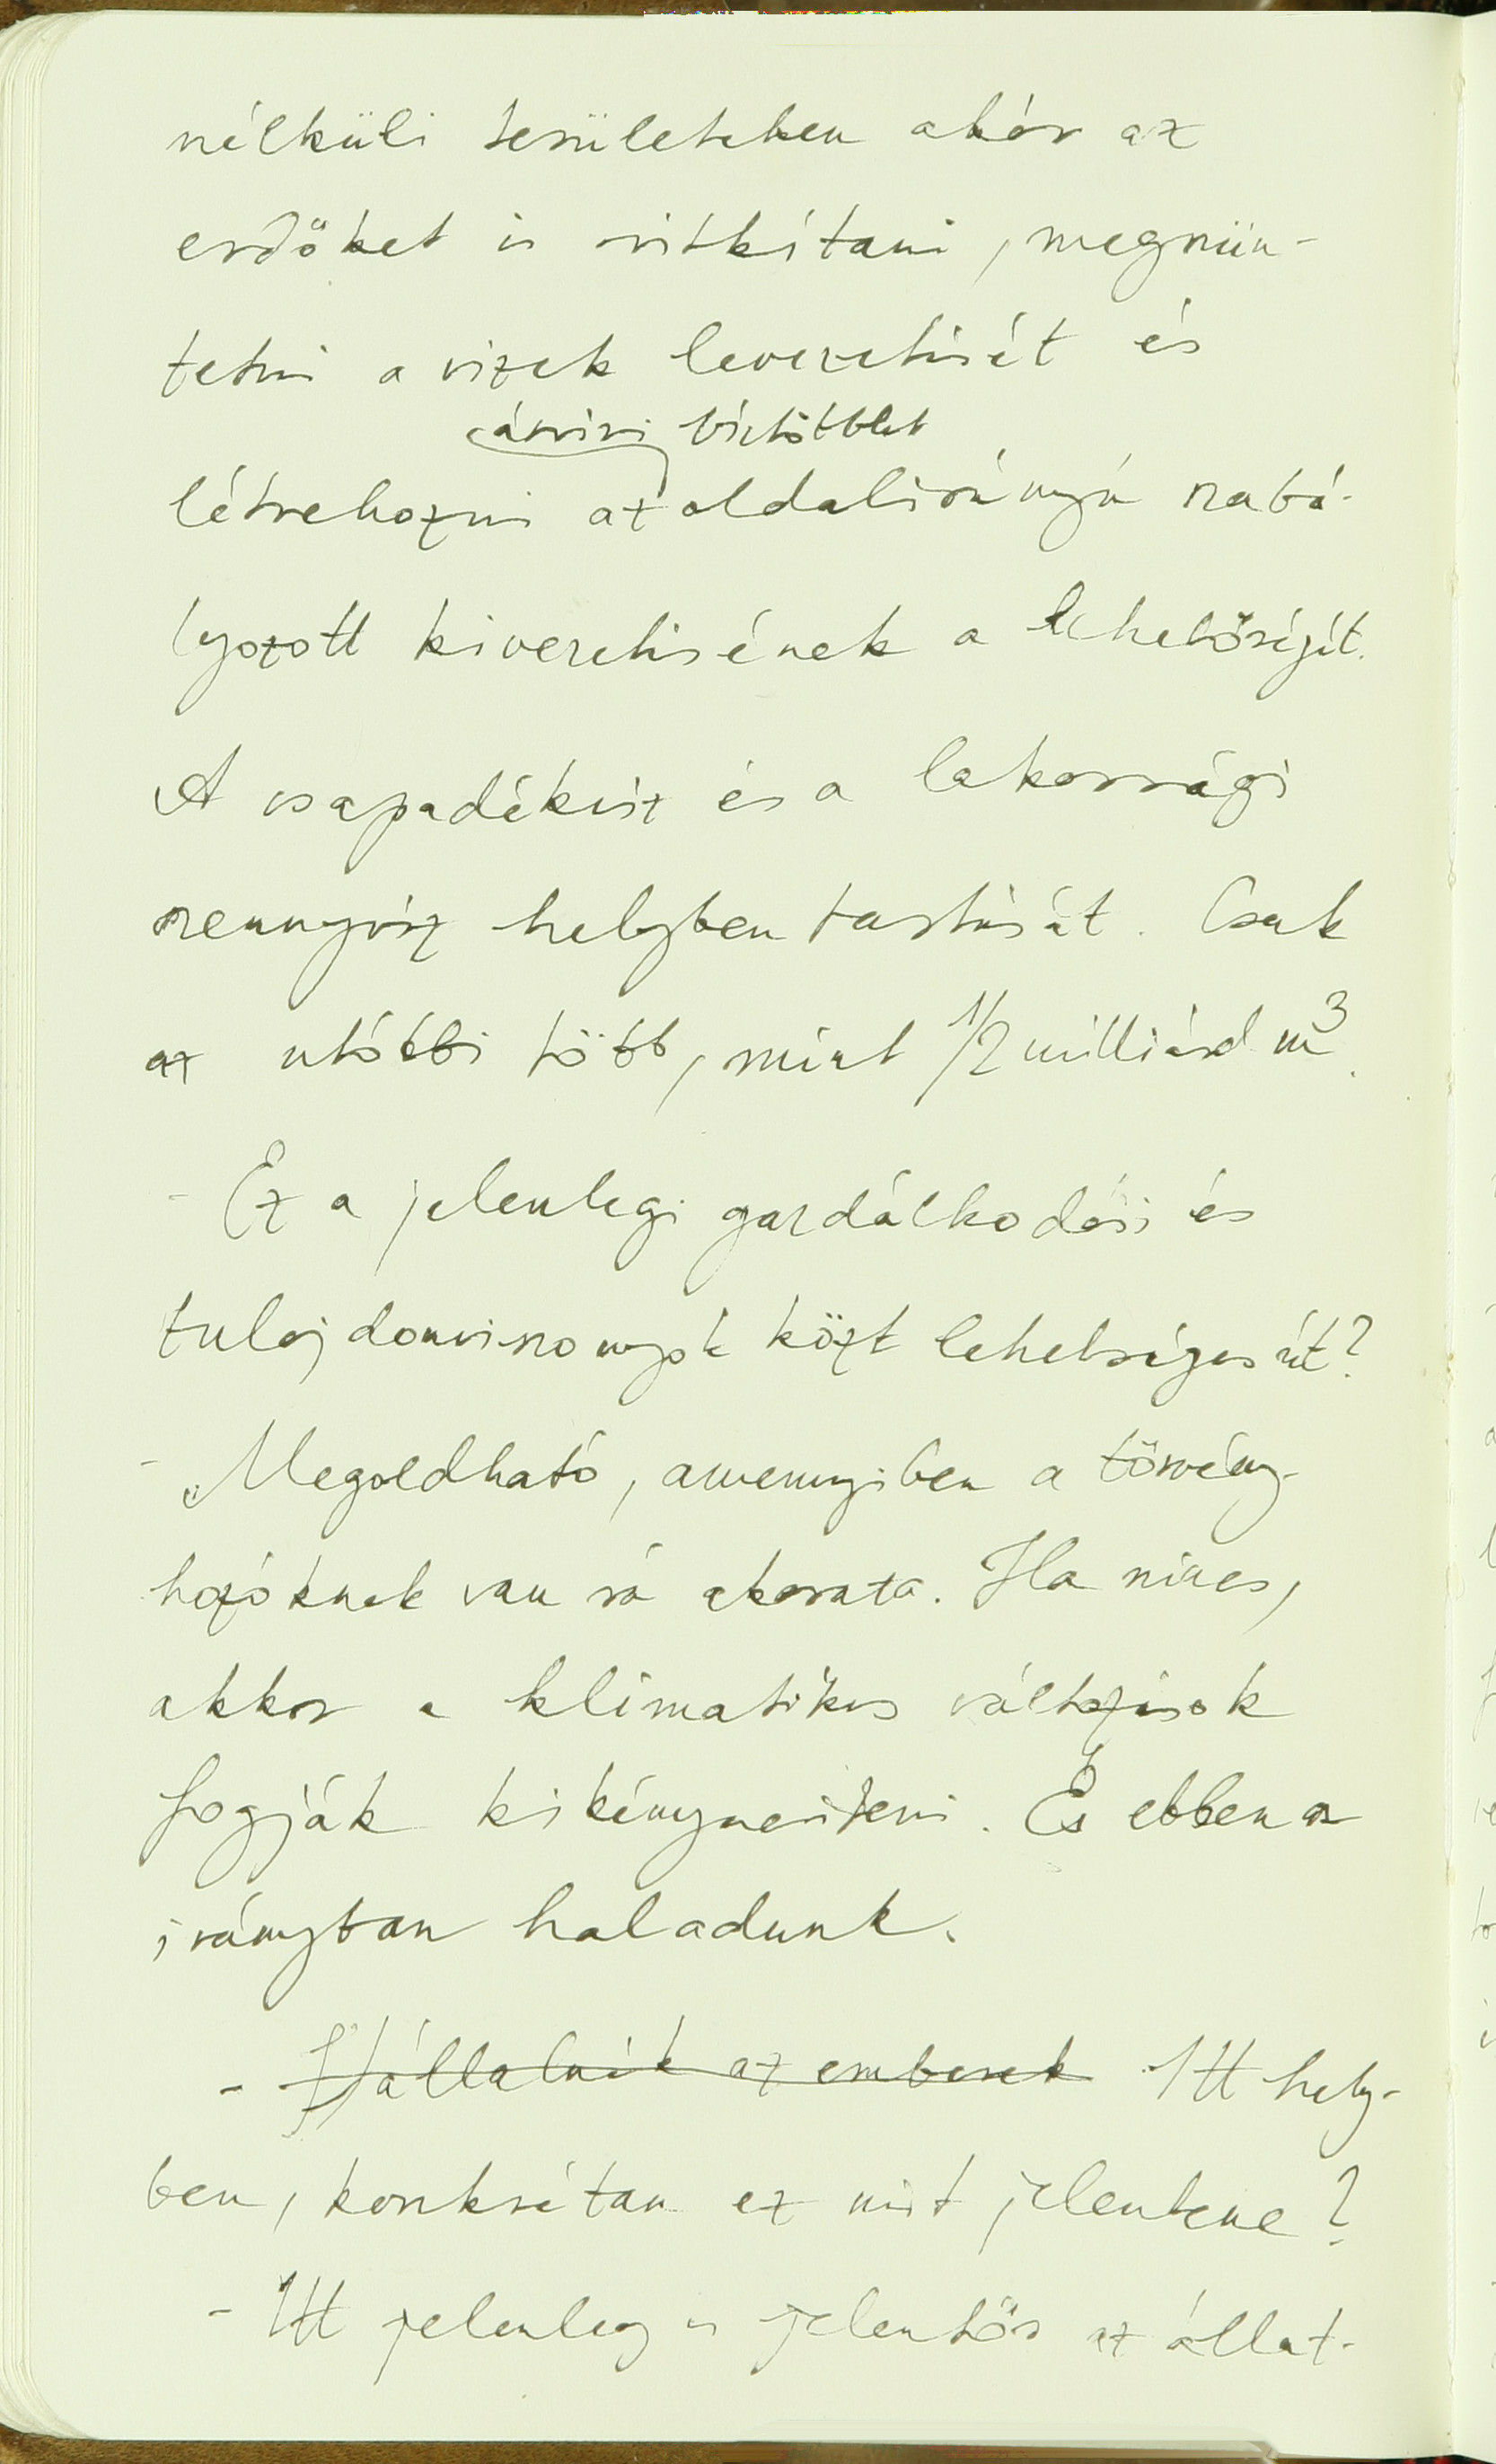 nélküli területeken akár az
erdőket is ritkítani, megszün-
tetni a vizek levezetését és
árvízi víztöbblet
létrehozni az oldalirányú szabá-
lyozott kivezetésének a lehetőségét.
A csapadékvíz és a lakossági
szennyvíz helyben tartását. Csak
az utóbbi több, mint 1/2 milliárd m³.
- Ez a jelenlegi gazdálkodási és
tulajdonviszonyok közt lehetséges út?
- Megoldható, amennyiben a törvény-
hozóknak van rá akarata. Ha nincs,
akkor a klimatikus változások
fogják kikényszeríteni. És ebben az
irányban haladunk.
- az emberek Itt hely-
ben, konkrétan ez mit jelentene?
- Itt jelenleg is jelentős az állat-